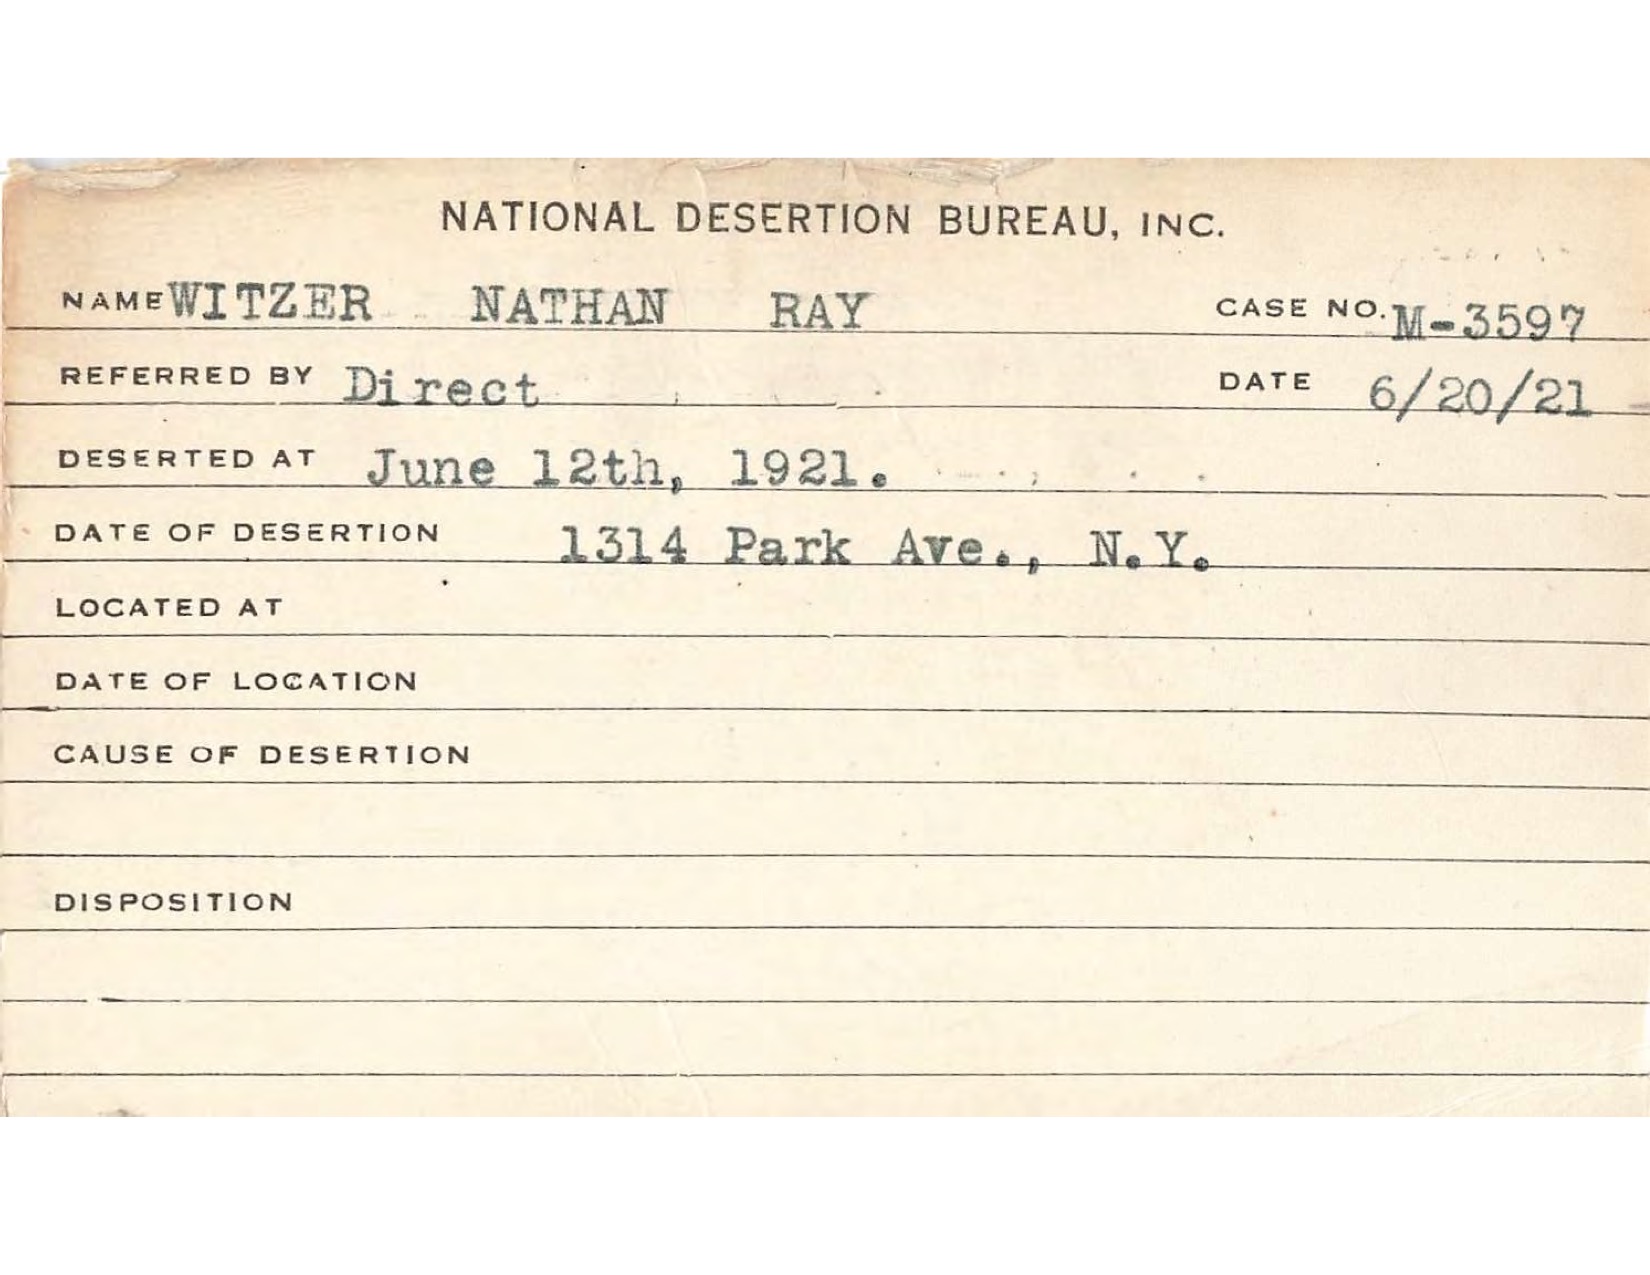 NATIONAL DESERTION BUREAU, INC.
NAME WITZER NATHAN RAY CASE NO. M-3597
REFERRED BY Direct DATE 6/20/21
DESERTED AT June 12th, 1921.
DATE OF DESERTION 1314 Park Ave., N.Y.
LOCATED AT
DATE OF LOCATION
CAUSE OF DESERTION
DISPOSITION